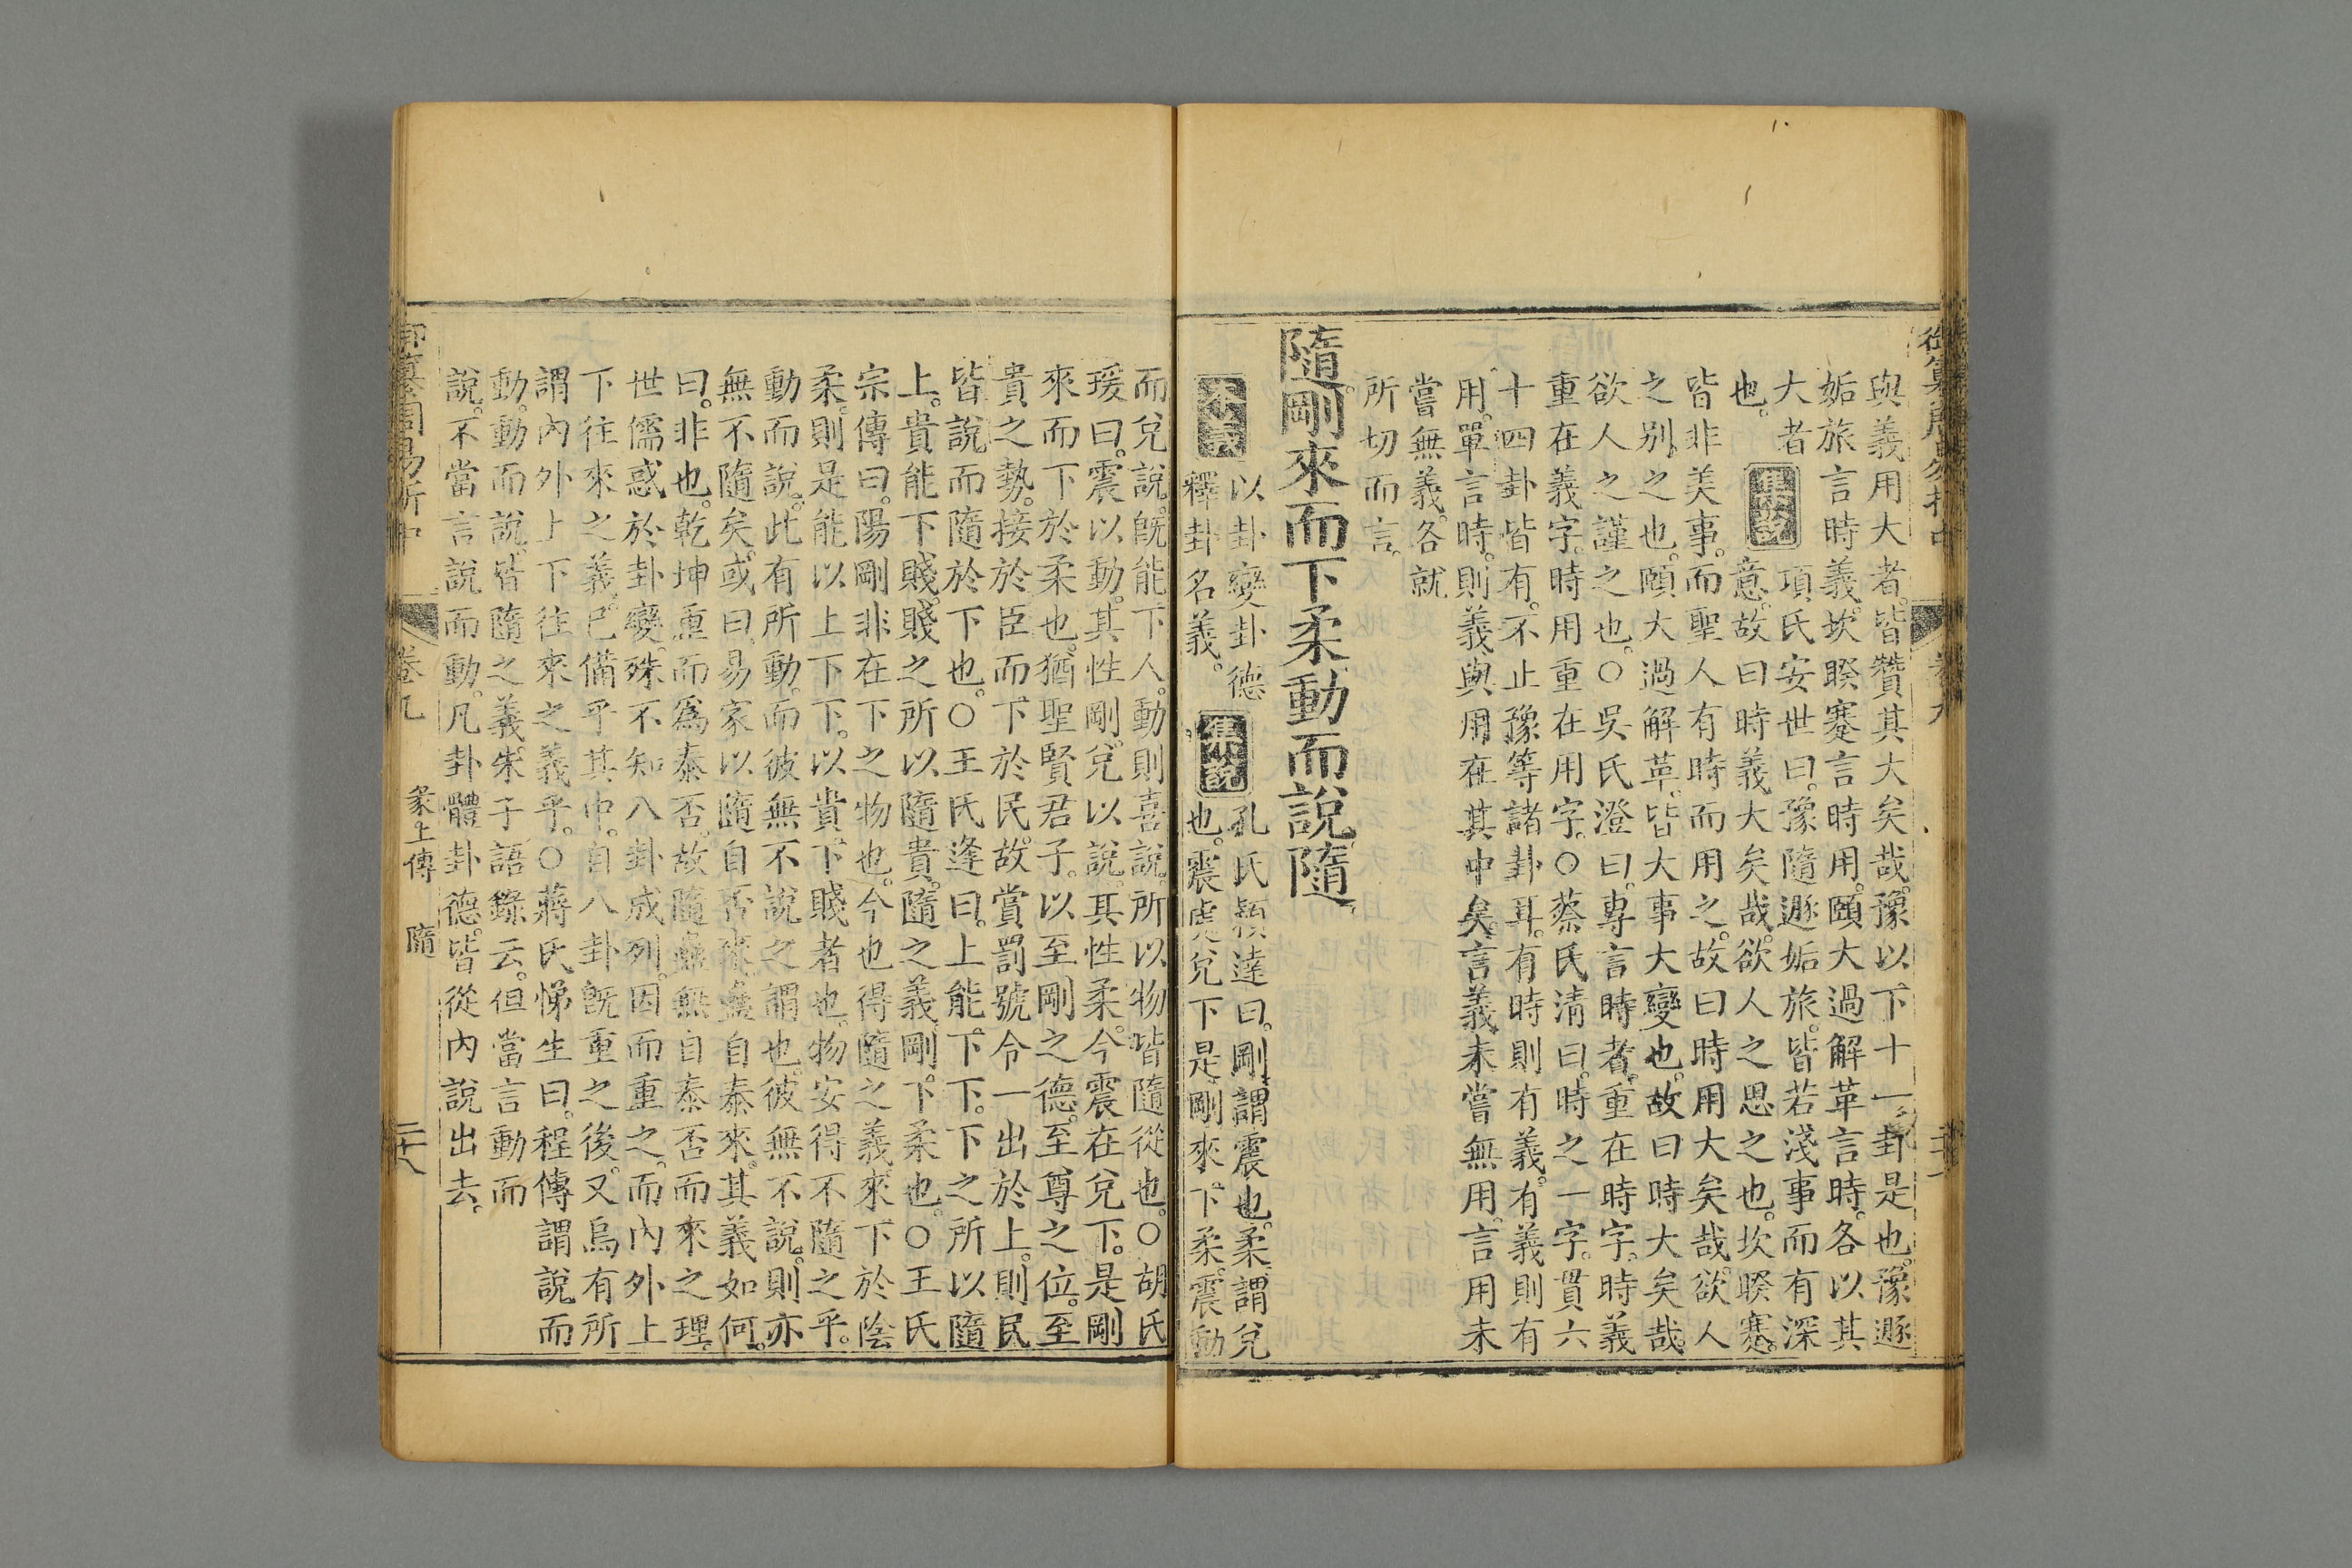 與義用大者。皆贊其大矣哉。豫以下十一卦是也。豫遯
姤旅言時義。坎睽蹇言時用。頤大過解革言時。各以其
大者 集說 項氏安世曰。豫隨遯姤旅。皆若淺事而有深
也。 意。故曰時義大矣哉。欲人之思之也。坎睽蹇。
皆非美事。而聖人有時而用之。故曰時用大矣哉。欲人
之別之也。頤大過解革。皆大事大變也。故曰時大矣哉。
欲人之謹之也。○吳氏澄曰。專言時者。重在時字。時義
重在義字。時用重在用字。○蔡氏清曰。時之一字。貫六
十四卦皆有。不止豫等諸卦耳。有時則有義。有義則有
用。單言時。則義與用在其中矣。言義未嘗無用。言用未
嘗無義。各就
所切而言。
隨。剛來而下柔。動而說。隨。
本義 以卦變卦德 集說 孔氏穎達曰。剛謂震也。柔謂兌
釋卦名義。 也。震處兌下。是剛來下柔。震動
而兌說。旣能下人。動則喜說。所以物皆隨從也。○胡氏
瑗曰。震以動。其性剛。兌以說。其性柔。今震在兌下。是剛
來而下於柔也。猶聖賢君子。以至剛之德。至尊之位。至
貴之勢。接於臣而下於民。故賞罰號令一出於上。則民
皆說而隨於下也。○王氏逢曰。上能下下。下之所以隨
上。貴能下賤。賤之所以隨貴。隨之義。剛下柔也。○王氏
宗傳曰。陽剛非在下之物也。今也得隨之義。來下於陰
柔。則是能以上下下。以貴下賤者也。物安得不隨之乎。
動而說。此有所動。而彼無不說之謂也。彼無不說。則亦
無不隨矣。或曰。易家以隨自否來。蠱自泰來。其義如何。
曰。非也。乾坤重而爲泰否。故隨蠱無自泰否而來之理。
世儒惑於卦變。殊不知八卦成列。因而重之。而內外上
下往來之義。已備乎其中。自八卦旣重之後。又烏有所
謂內外上下往來之義乎。○蔣氏悌生曰。程傳謂說而
動。動而說。皆隨之義。朱子語錄云。但當言動而
說。不當言說而動。凡卦體卦德。皆從內說出去。
御纂周易折中 卷九 彖上傳 隨 二十八